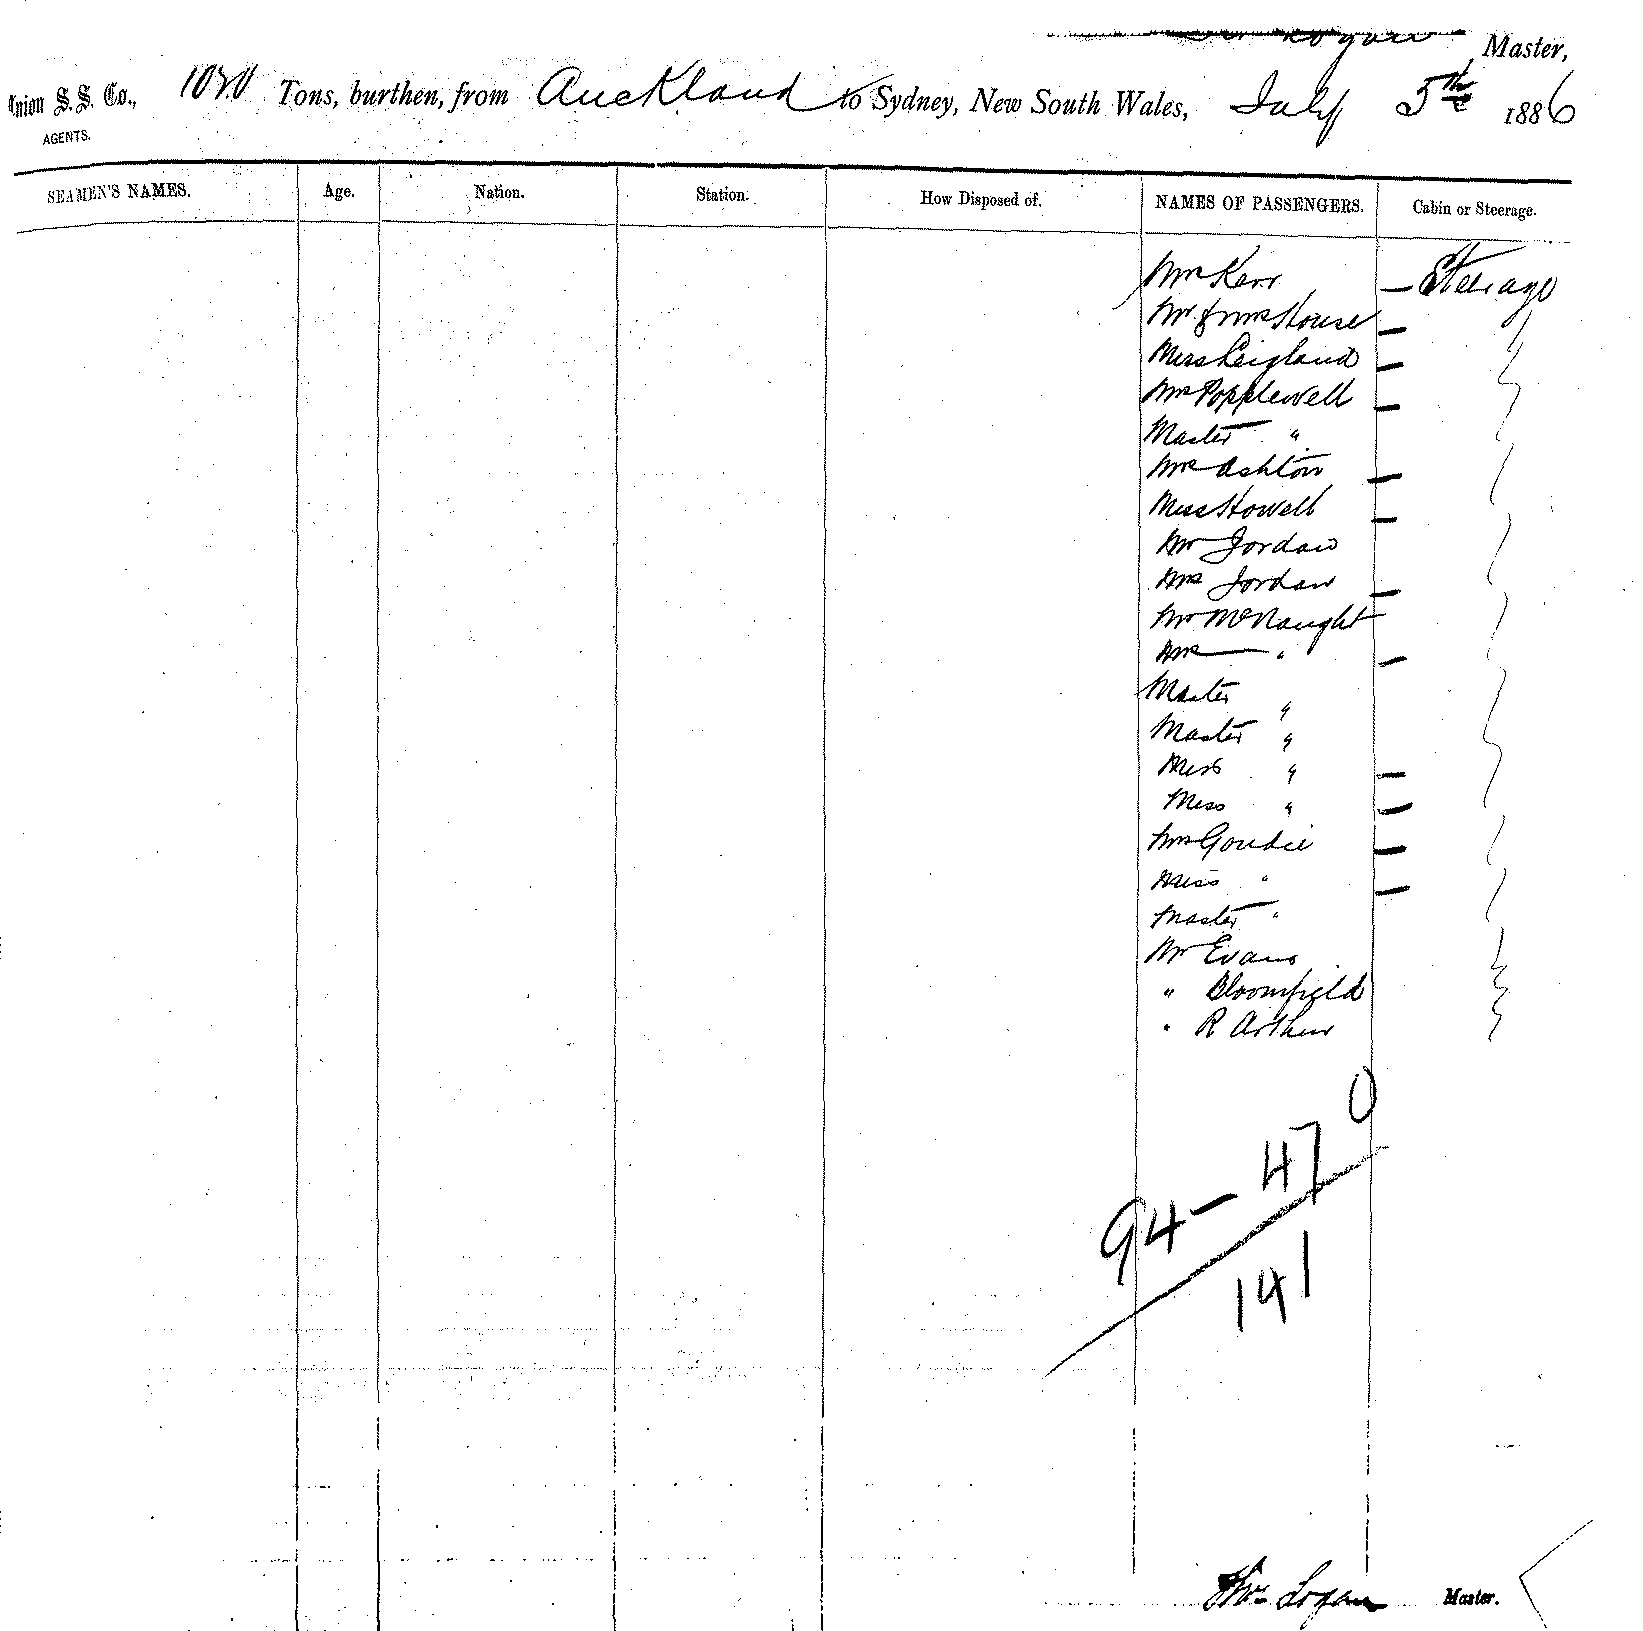 Logan Master,
Union S.S. Co., Tons, burthen, from Auckland to Sydney, New South Wales, July 5th 1886
AGENTS.
SEAMEN'S NAMES. Age. Nation. Station. How Disposed of. NAMES OF PASSENGERS. Cabin or Steerage.
Mrs Kerr — Steerage
Mr & Mrs House —
Miss Leigland —
Mrs Popplewell —
Master "
Mrs Ashton —
Miss Howell —
Mr Jordan
Mrs Jordan —
Mr McNaught
Mrs " —
Master "
Master "
Miss " —
Miss " —
Mrs Goudie —
Miss " —
Master "
Mr Evans
" Bloomfield
" R Arthur
0
94 - 47
141
Thos Logan Master.